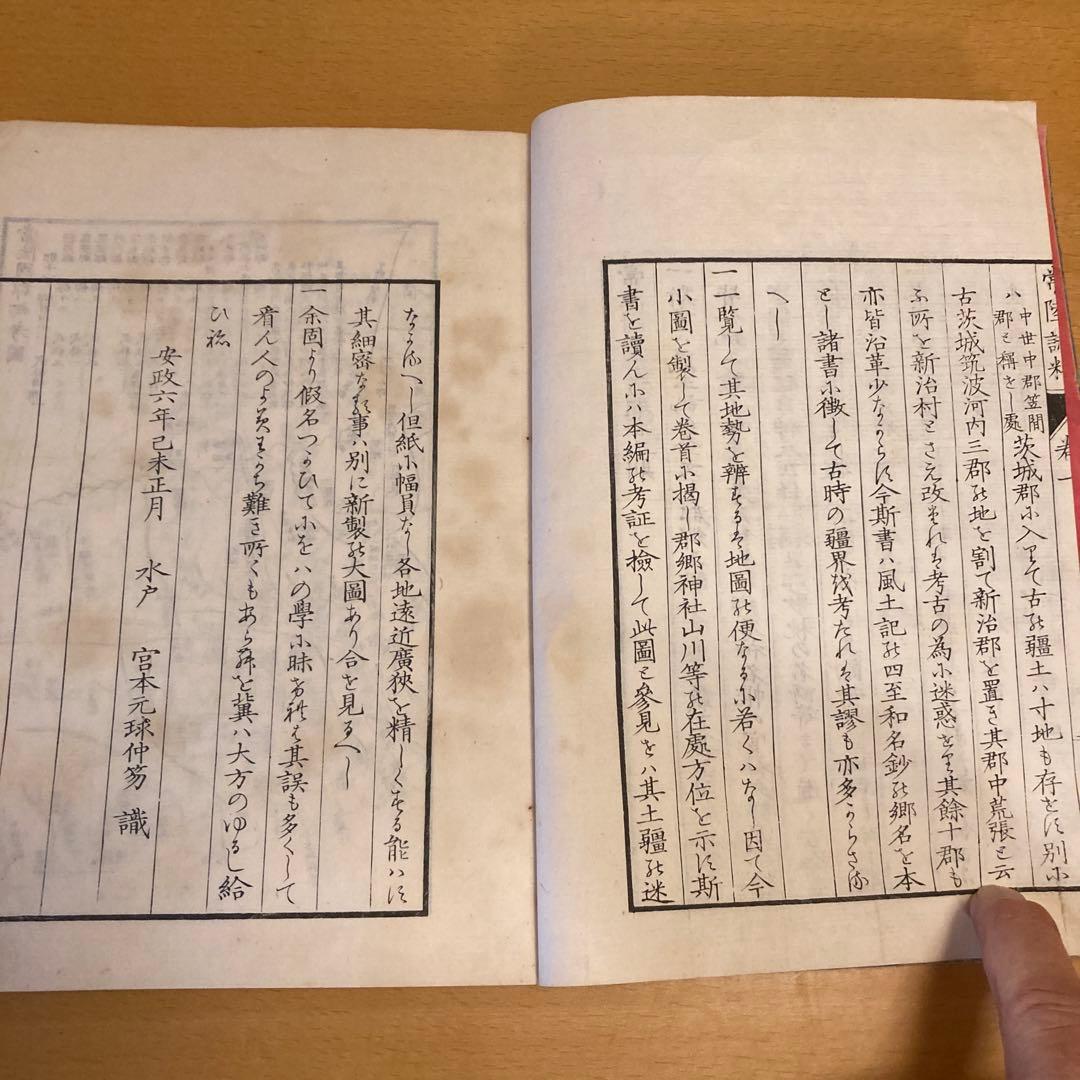 常陸誌料 卷一
八郡と稱をし處
中世中郡笠間
茨城郡に入りて古の疆土ハ寸地も存せす別に
古茨城筑波河内三郡の地を割て新治郡を置き其郡中荒張と云
ふ所を新治村とさえ改められは考古の為に迷惑をり其餘十郡も
亦皆沿革少なからす今斯書ハ風土記の四至和名鈔の郷名を本
とし諸書に徴して古時の疆界を考たれは其謬も亦多からさる
へし
一一覧して其地勢を辨するは地圖の便なるに若くハなし因て今
小圖を製して卷首に揭し郡郷神社山川等の在處方位を示す斯
書を讀んにハ本編の考証を撿して此圖と參見をハ其土疆の迷
なかるへし但紙に幅員なし各地遠近廣狹を精しくする能ハす
其細審なる事ハ別に新製の大圖あり合を見るへし
一余固より假名つかひてにをハの學に昧けれは其誤も多くして
看ん人のよみわかち難き所くもあらんを冀ハ大方のゆるし給
ひね
安政六年己未正月 水戸 宮本元球仲笏 識